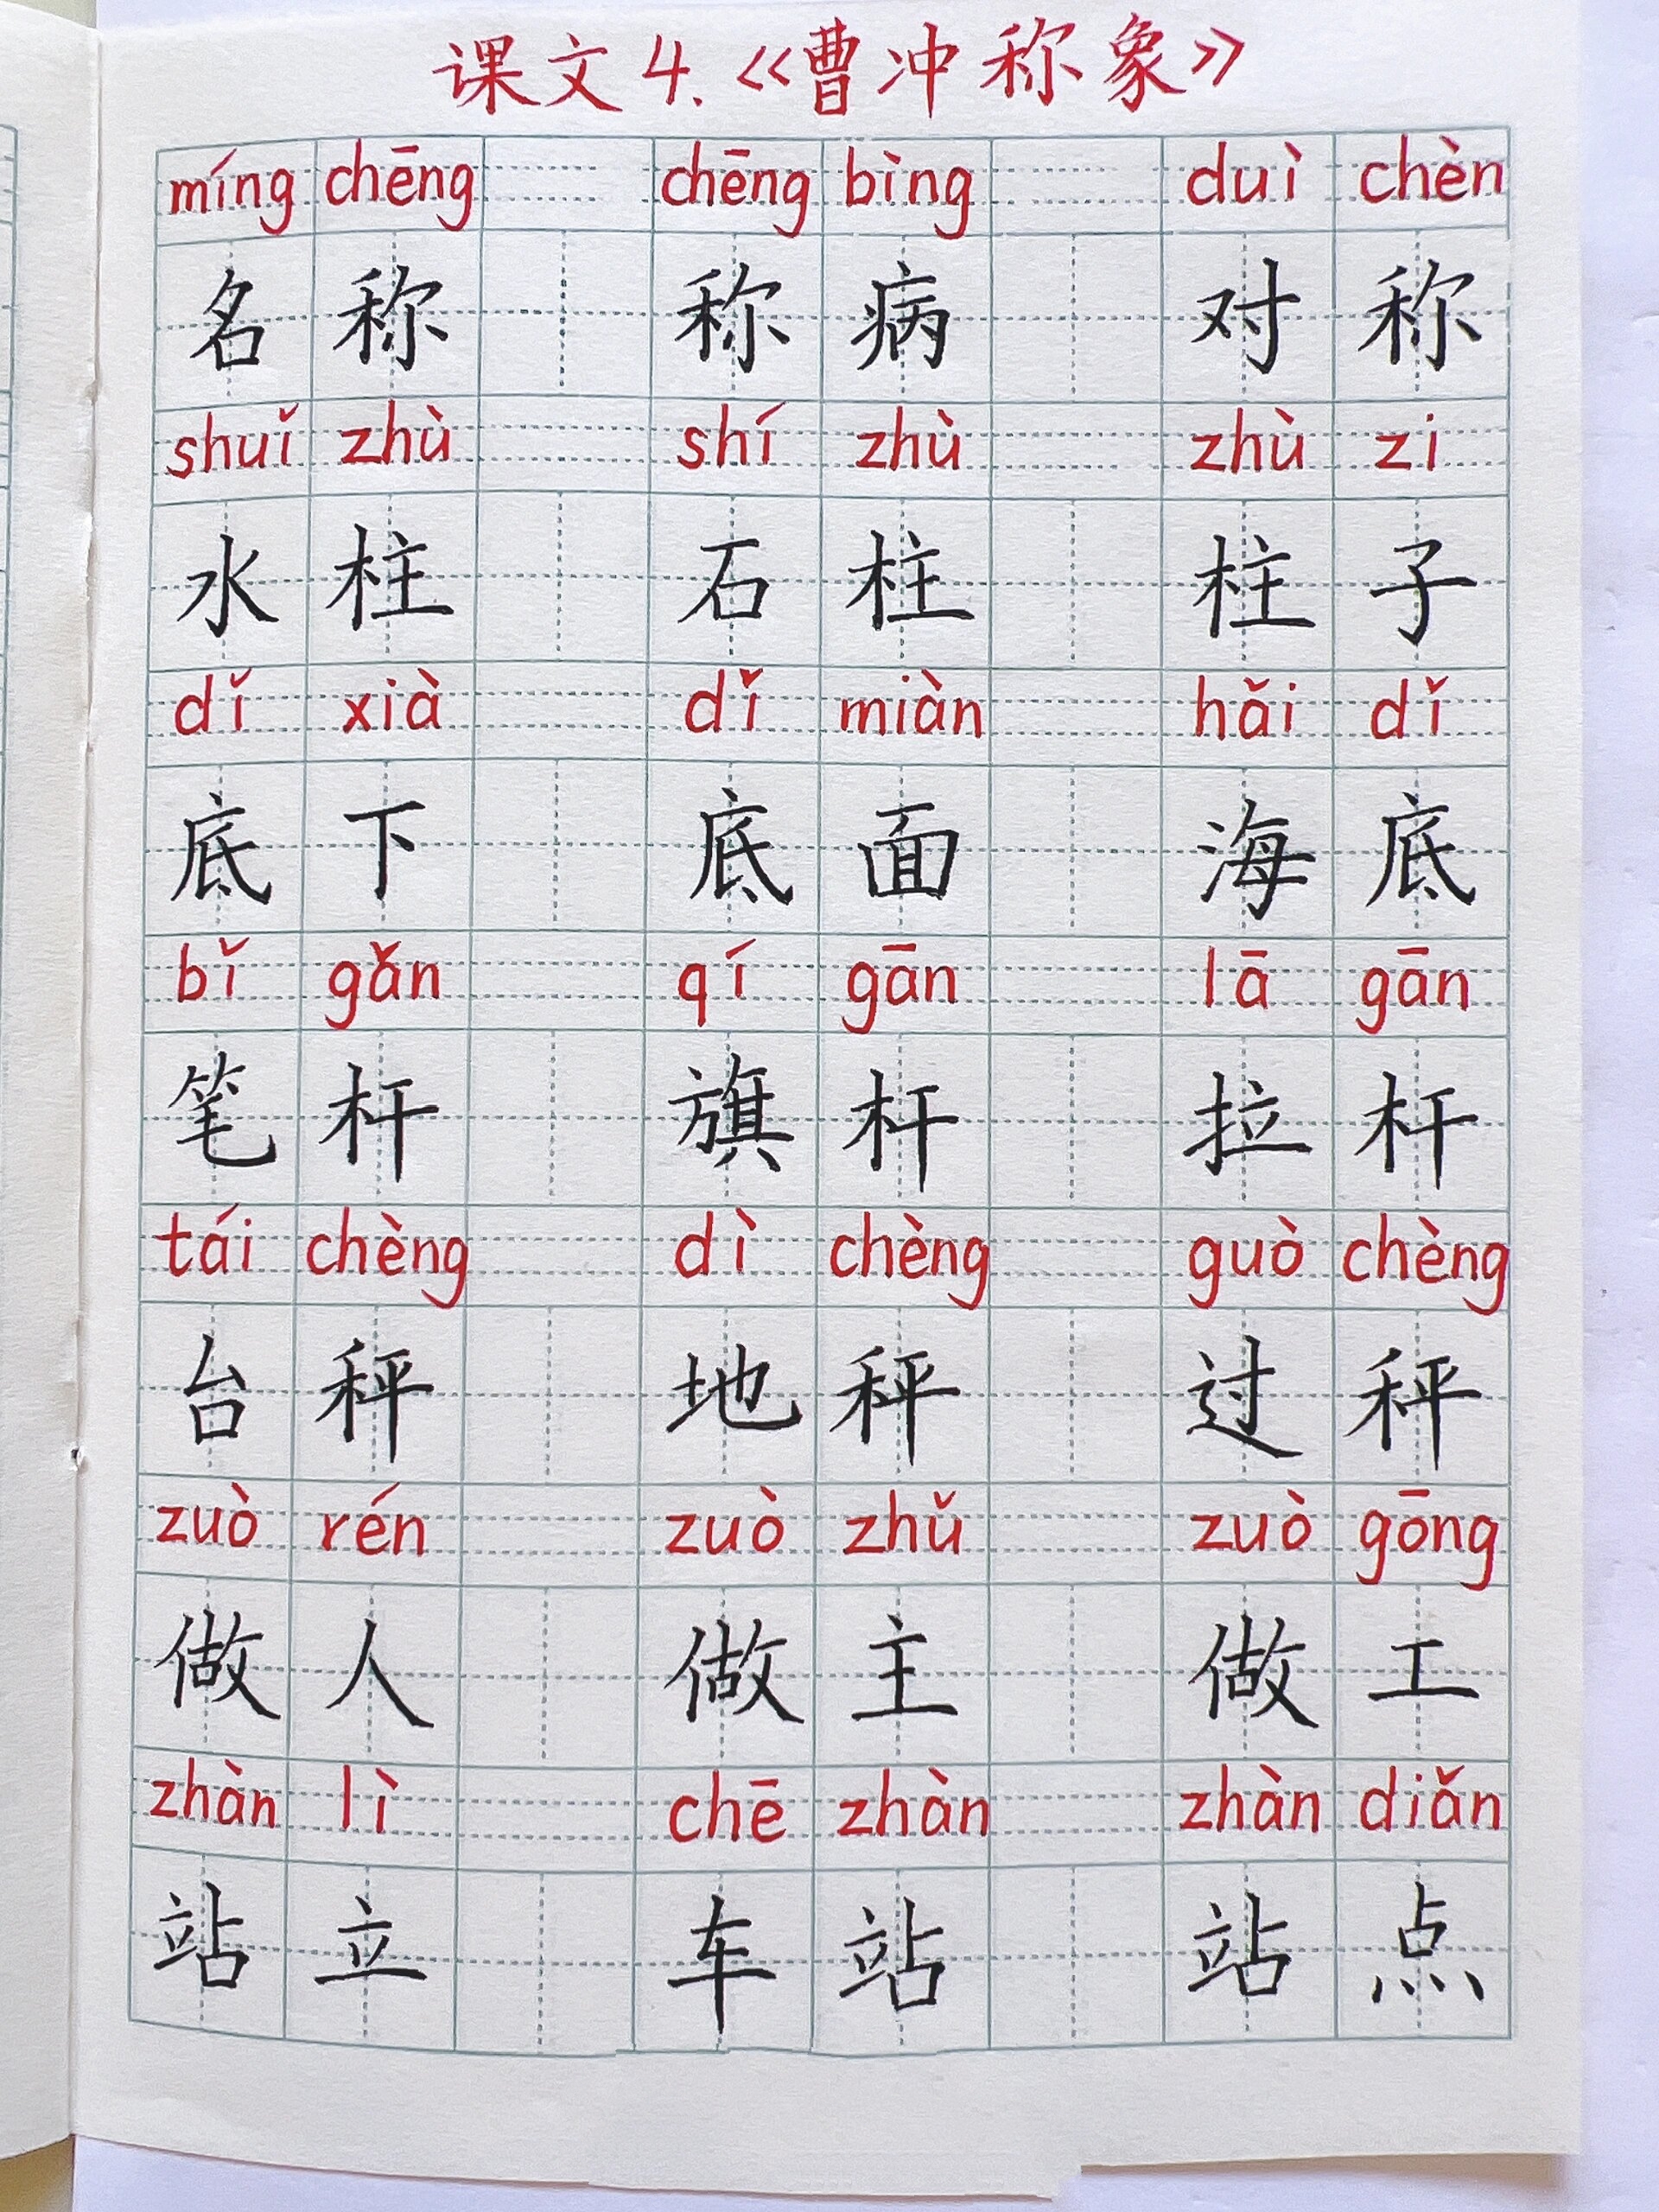 课文4.《曹冲称象》
míng chēng chēng bìng duì chèn
名称 称病 对称
shuǐ zhù shí zhù zhù zi
水柱 石柱 柱子
dǐ xià dǐ miàn hǎi dǐ
底下 底面 海底
bǐ gǎn qí gān lā gān
笔杆 旗杆 拉杆
tái chèng dì chèng guò chèng
台秤 地秤 过秤
zuò rén zuò zhǔ zuò gōng
做人 做主 做工
zhàn lì chē zhàn zhàn diǎn
站立 车站 站点